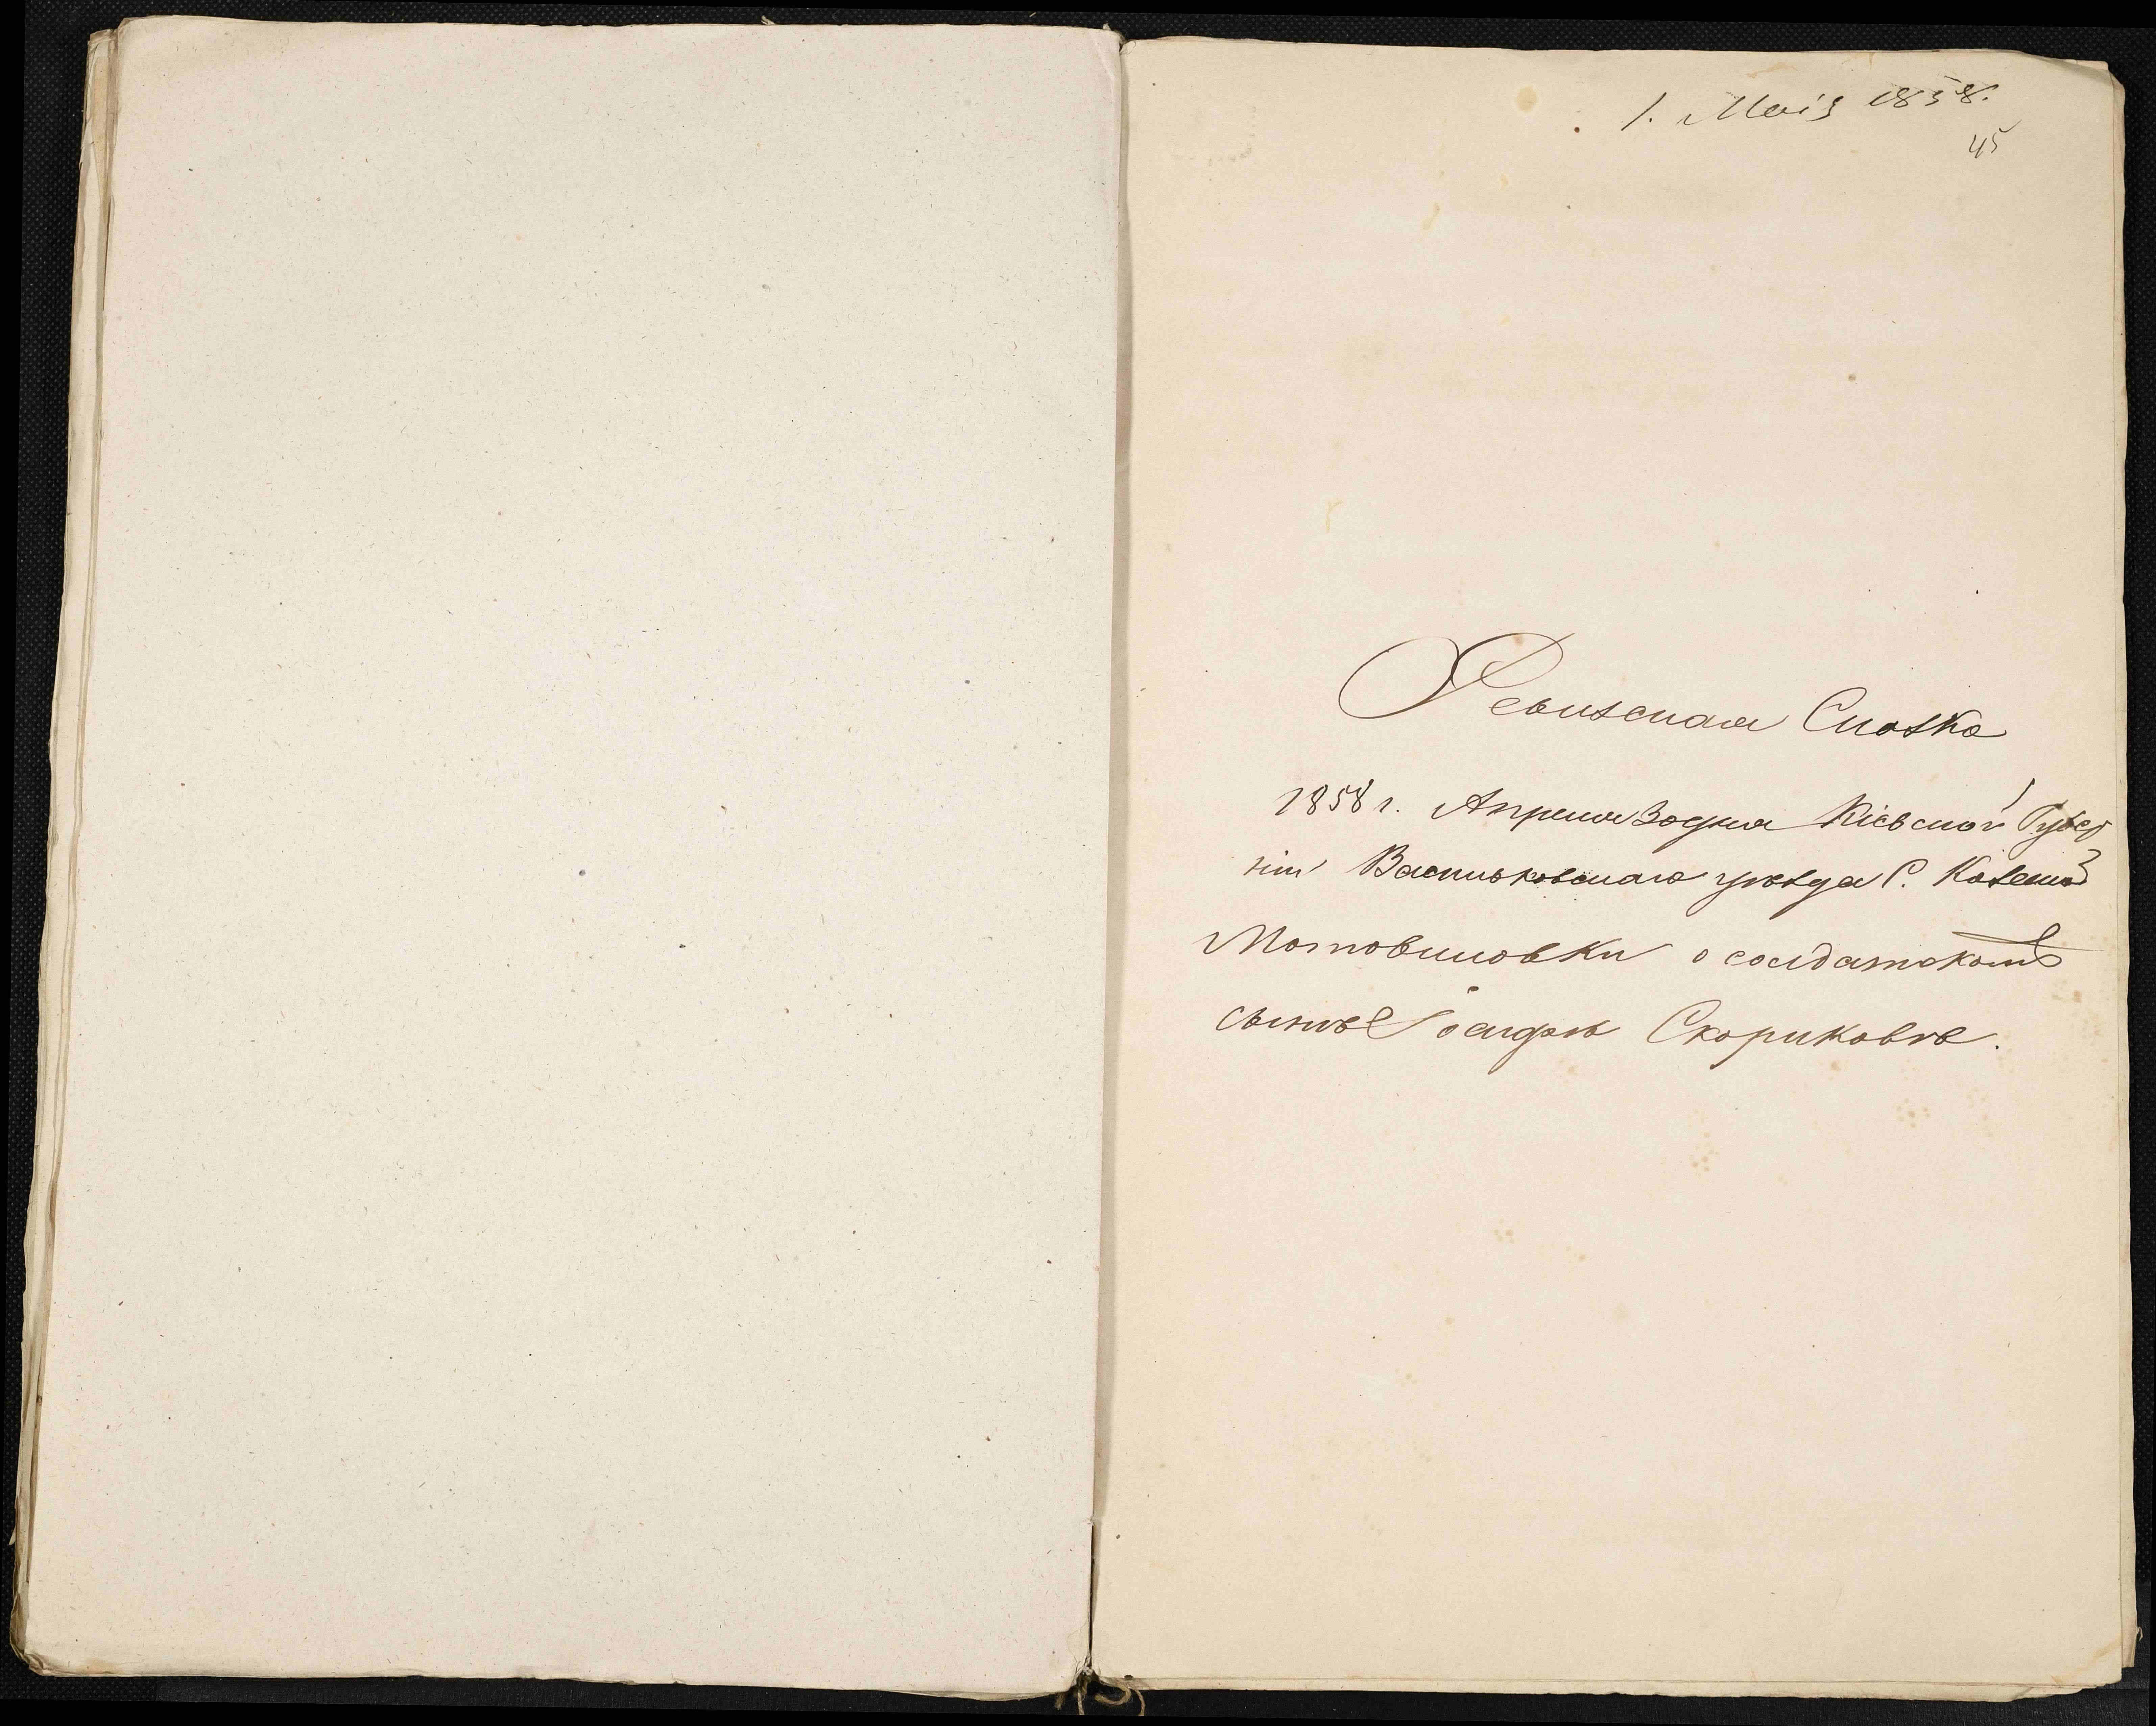 1. Маія 1858.
45
Ревизская Сказка
1858 г. Апреля 30 дня Кіевской Губер
ніи Васильковскаго уѣзда С. Казенной
Мотовиловки о солдатскомъ
сынѣ Скориковѣ.